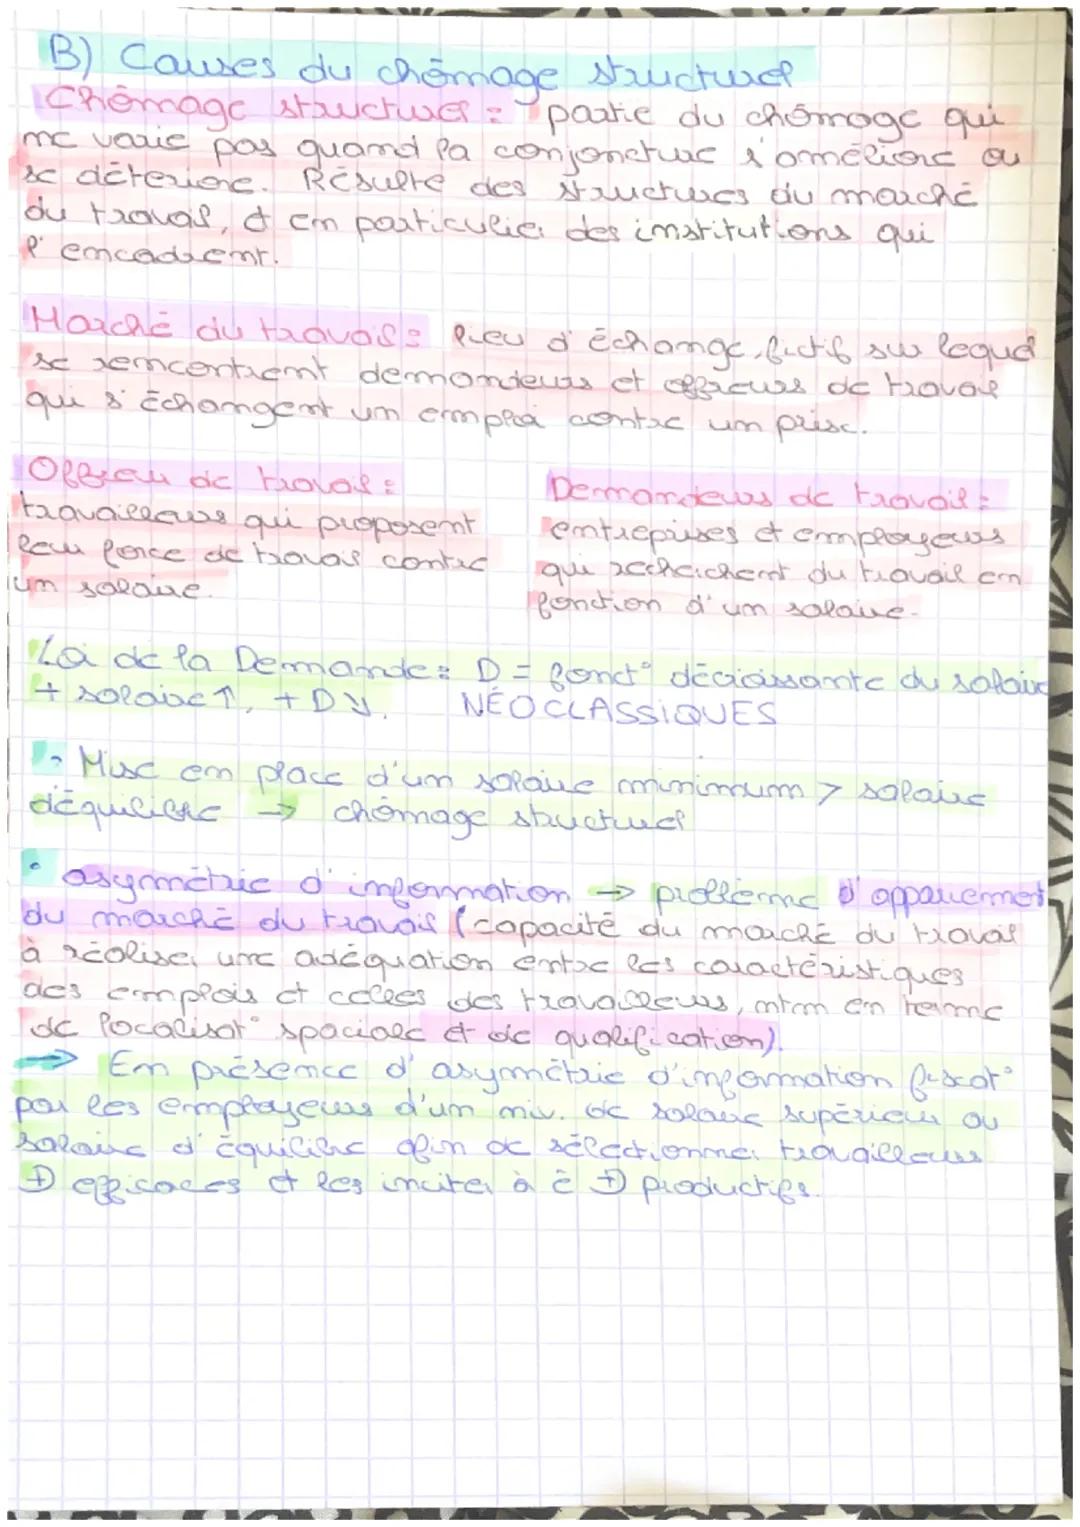 B) Causes du chômage structurel
Chômage structurel : partie du chômage qui
ne varie pas quand la conjoncture s'améliore ou
se déteriore. Résulte des structures du marché
du travail, & en particulier des institutions qui
l'encadrent.
Marché du travail : lieu d'échange fictif sur lequel
se rencontrent demandeurs et offreurs de travail
qui s'échangent un emploi contre un prix.
Offreur de travail :
travailleurs qui proposent
leur force de travail contre
un salaire.
Demandeurs de travail :
entreprises et employeurs
qui recherchent du travail en
fonction d'un salaire.
Loi de la Demande : D = fonct° décroissante du salaire
+ salaire ↑, + D ↘. NÉOCLASSIQUES
Mise en place d'un salaire minimum > salaire
d'équilibre → chômage structurel
• asymétrie d'information → problème d'appariement
du marché du travail (capacité du marché du travail
à réaliser une adéquation entre les caractéristiques
des emplois et celles des travailleurs, ntm en terme
de localisat° spaciale et de qualification).
→ En présence d'asymétrie d'information fixat°
par les employeurs d'un niv. de salaire supérieur au
salaire d'équilibre afin de sélectionner travailleurs
⊕ efficaces et les inciter à ê ⊕ productifs.